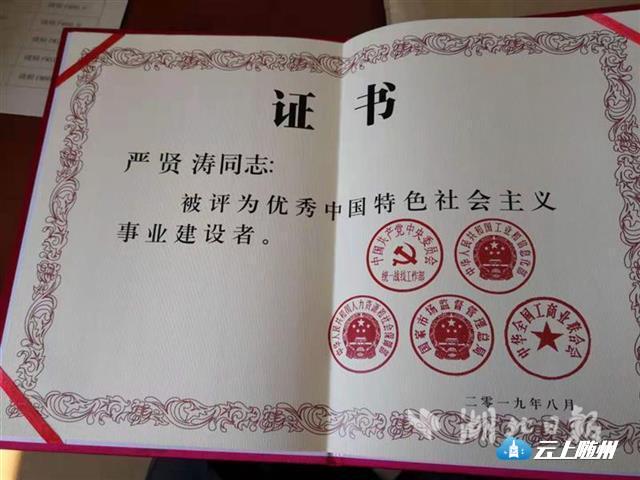 证书
严贤涛同志:
被评为优秀中国特色社会主义
事业建设者。
中国共产党中央委员会
统一战线工作部
中华人民共和国工业和信息化部
中华人民共和国人力资源和社会保障部
国家市场监督管理总局
中华全国工商业联合会
二零一九年八月
湖北日报
云上随州